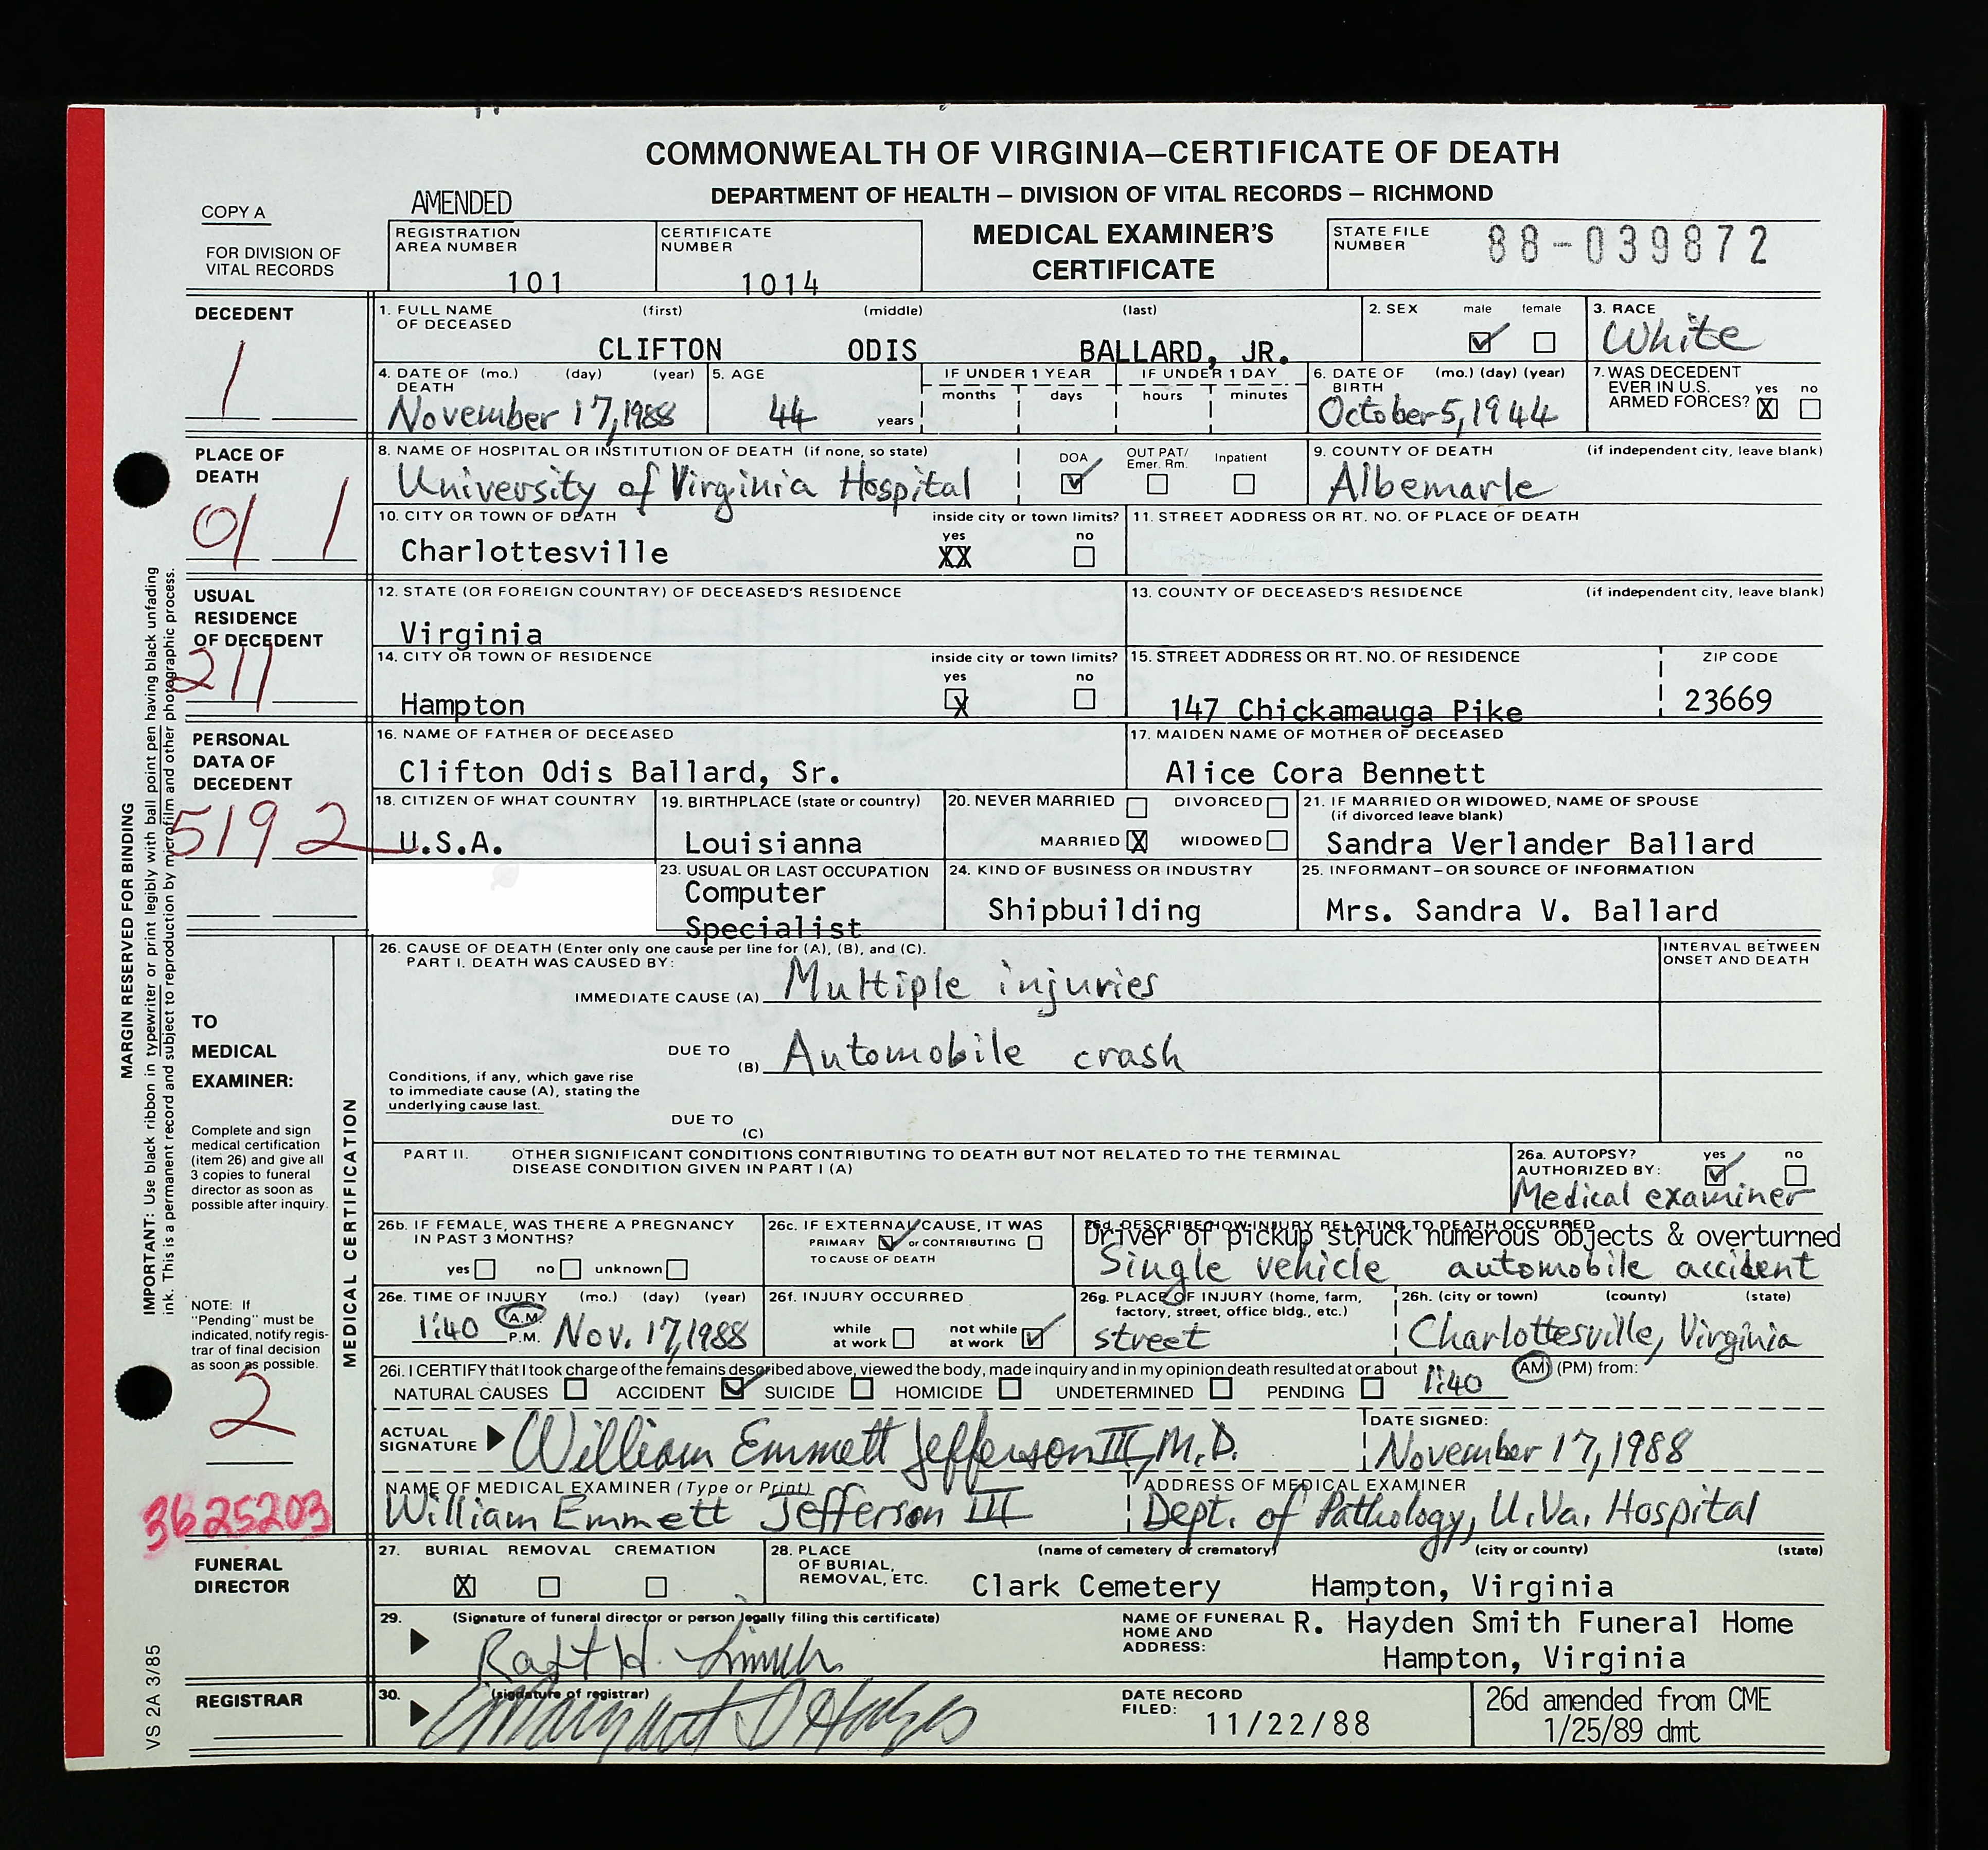 COMMONWEALTH OF VIRGINIA—CERTIFICATE OF DEATH
DEPARTMENT OF HEALTH — DIVISION OF VITAL RECORDS — RICHMOND
COPY A
AMENDED
FOR DIVISION OF VITAL RECORDS
REGISTRATION AREA NUMBER 101
CERTIFICATE NUMBER 1014
MEDICAL EXAMINER'S CERTIFICATE
STATE FILE NUMBER 88-039872
DECEDENT
1
1. FULL NAME OF DECEASED (first) (middle) (last)
CLIFTON ODIS BALLARD, JR.
2. SEX male female
3. RACE
White
4. DATE OF DEATH (mo.) (day) (year)
November 17, 1988
5. AGE
44 years
IF UNDER 1 YEAR
months days
IF UNDER 1 DAY
hours minutes
6. DATE OF BIRTH (mo.) (day) (year)
October 5, 1944
7. WAS DECEDENT EVER IN U.S. ARMED FORCES? yes no
X
PLACE OF DEATH
01 1
8. NAME OF HOSPITAL OR INSTITUTION OF DEATH (if none, so state)
University of Virginia Hospital
DOA OUT PAT/ Emer. Rm. Inpatient
9. COUNTY OF DEATH (if independent city, leave blank)
Albemarle
10. CITY OR TOWN OF DEATH inside city or town limits? yes no
Charlottesville XX
11. STREET ADDRESS OR RT. NO. OF PLACE OF DEATH
USUAL RESIDENCE OF DECEDENT
211
12. STATE (OR FOREIGN COUNTRY) OF DECEASED'S RESIDENCE
Virginia
13. COUNTY OF DECEASED'S RESIDENCE (if independent city, leave blank)
14. CITY OR TOWN OF RESIDENCE inside city or town limits? yes no
Hampton X
15. STREET ADDRESS OR RT. NO. OF RESIDENCE ZIP CODE
147 Chickamauga Pike 23669
PERSONAL DATA OF DECEDENT
5192
16. NAME OF FATHER OF DECEASED
Clifton Odis Ballard, Sr.
17. MAIDEN NAME OF MOTHER OF DECEASED
Alice Cora Bennett
18. CITIZEN OF WHAT COUNTRY
U.S.A.
19. BIRTHPLACE (state or country)
Louisianna
20. NEVER MARRIED DIVORCED
MARRIED X WIDOWED
21. IF MARRIED OR WIDOWED, NAME OF SPOUSE (if divorced leave blank)
Sandra Verlander Ballard
23. USUAL OR LAST OCCUPATION
Computer
Specialist
24. KIND OF BUSINESS OR INDUSTRY
Shipbuilding
25. INFORMANT—OR SOURCE OF INFORMATION
Mrs. Sandra V. Ballard
MARGIN RESERVED FOR BINDING
IMPORTANT: Use black ribbon in typewriter or print legibly with ball point pen having black unfading ink. This is a permanent record and subject to reproduction by microfilm and other photographic process.
TO MEDICAL EXAMINER:
Complete and sign medical certification (item 26) and give all 3 copies to funeral director as soon as possible after inquiry.
NOTE: If "Pending" must be indicated, notify registrar of final decision as soon as possible.
2
3625203
MEDICAL CERTIFICATION
26. CAUSE OF DEATH (Enter only one cause per line for (A), (B), and (C).
PART I. DEATH WAS CAUSED BY:
INTERVAL BETWEEN ONSET AND DEATH
IMMEDIATE CAUSE (A) Multiple injuries
DUE TO (B) Automobile crash
Conditions, if any, which gave rise to immediate cause (A), stating the underlying cause last.
DUE TO (C)
PART II. OTHER SIGNIFICANT CONDITIONS CONTRIBUTING TO DEATH BUT NOT RELATED TO THE TERMINAL DISEASE CONDITION GIVEN IN PART I (A)
26a. AUTOPSY? yes no
AUTHORIZED BY:
Medical examiner
26b. IF FEMALE, WAS THERE A PREGNANCY IN PAST 3 MONTHS?
yes no unknown
26c. IF EXTERNAL CAUSE, IT WAS
PRIMARY or CONTRIBUTING
TO CAUSE OF DEATH
26d. DESCRIBE HOW INJURY RELATING TO DEATH OCCURRED
Driver of pickup struck numerous objects & overturned
Single vehicle automobile accident
26e. TIME OF INJURY (mo.) (day) (year)
1:40 A.M. P.M. Nov. 17, 1988
26f. INJURY OCCURRED
while at work not while at work
26g. PLACE OF INJURY (home, farm, factory, street, office bldg., etc.)
street
26h. (city or town) (county) (state)
Charlottesville, Virginia
26i. I CERTIFY that I took charge of the remains described above, viewed the body, made inquiry and in my opinion death resulted at or about 1:40 (AM) (PM) from:
NATURAL CAUSES ACCIDENT SUICIDE HOMICIDE UNDETERMINED PENDING
ACTUAL SIGNATURE William Emmett Jefferson III, M.D.
DATE SIGNED:
November 17, 1988
NAME OF MEDICAL EXAMINER (Type or Print)
William Emmett Jefferson III
ADDRESS OF MEDICAL EXAMINER
Dept. of Pathology, U.Va. Hospital
FUNERAL DIRECTOR
27. BURIAL REMOVAL CREMATION
X
28. PLACE OF BURIAL, REMOVAL, ETC. (name of cemetery or crematory) (city or county) (state)
Clark Cemetery Hampton, Virginia
29. (Signature of funeral director or person legally filing this certificate)
NAME OF FUNERAL HOME AND ADDRESS:
R. Hayden Smith Funeral Home
Hampton, Virginia
REGISTRAR
30. (signature of registrar)
DATE RECORD FILED: 11/22/88
26d amended from CME
1/25/89 dmt
VS 2A 3/85